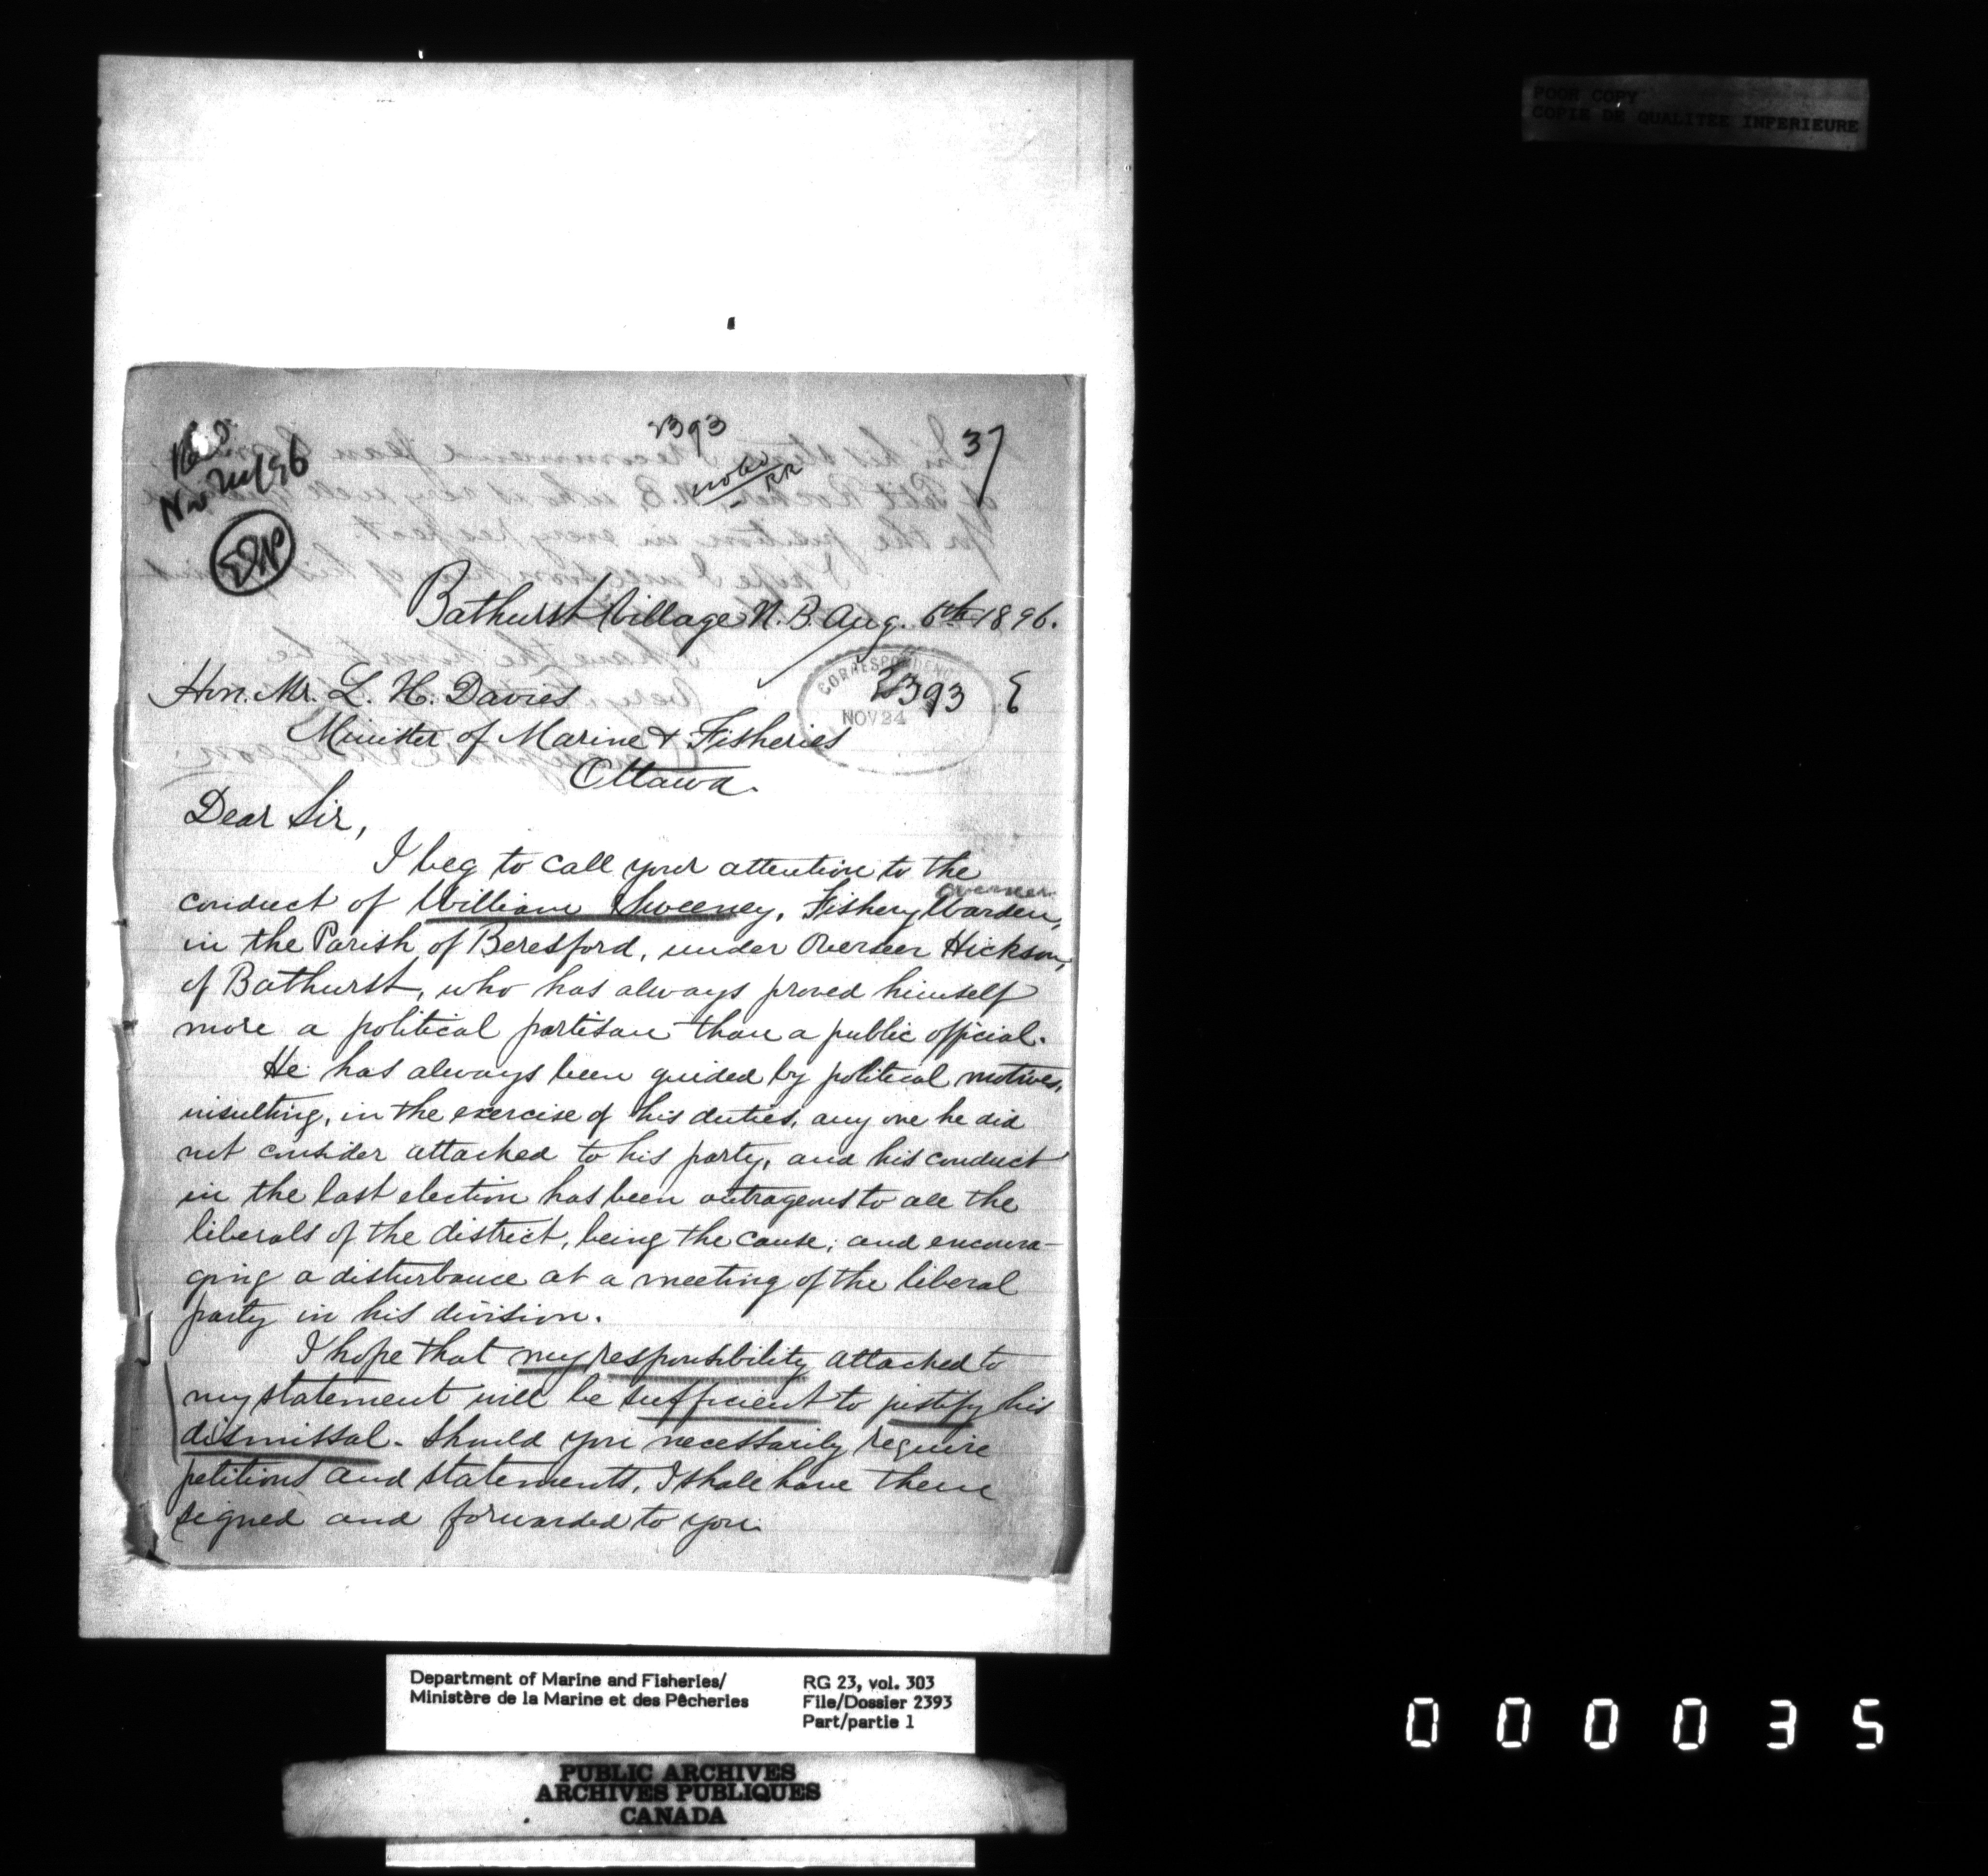 POOR COPY
COPIE DE QUALITEE INFERIEURE
2393
37
Nov 24/96
Bathurst Village N.B. Aug. 6th 1896.
CORRESPONDENCE
2393
NOV 24
Hon. Mr. L. H. Davies
Minister of Marine & Fisheries
Ottawa.
Dear Sir,
I beg to call your attention to the
overseer
conduct of William Sweeney, Fishery Warden,
in the Parish of Beresford, under Overseer Hickson,
of Bathurst, who has always proved himself
more a political partisan than a public official.
He has always been guided by political motives,
insulting, in the exercise of his duties, any one he did
not consider attached to his party, and his conduct
in the last election has been outrageous to all the
liberals of the district, being the cause, and encoura-
ging a disturbance at a meeting of the liberal
party in his division.
I hope that my responsibility attached to
my statement will be sufficient to justify his
dismissal. Should you necessarily require
petitions and statements, I shall have them
signed and forwarded to you.
Department of Marine and Fisheries/
Ministère de la Marine et des Pêcheries
RG 23, vol. 303
File/Dossier 2393
Part/partie 1
PUBLIC ARCHIVES
ARCHIVES PUBLIQUES
CANADA
000035